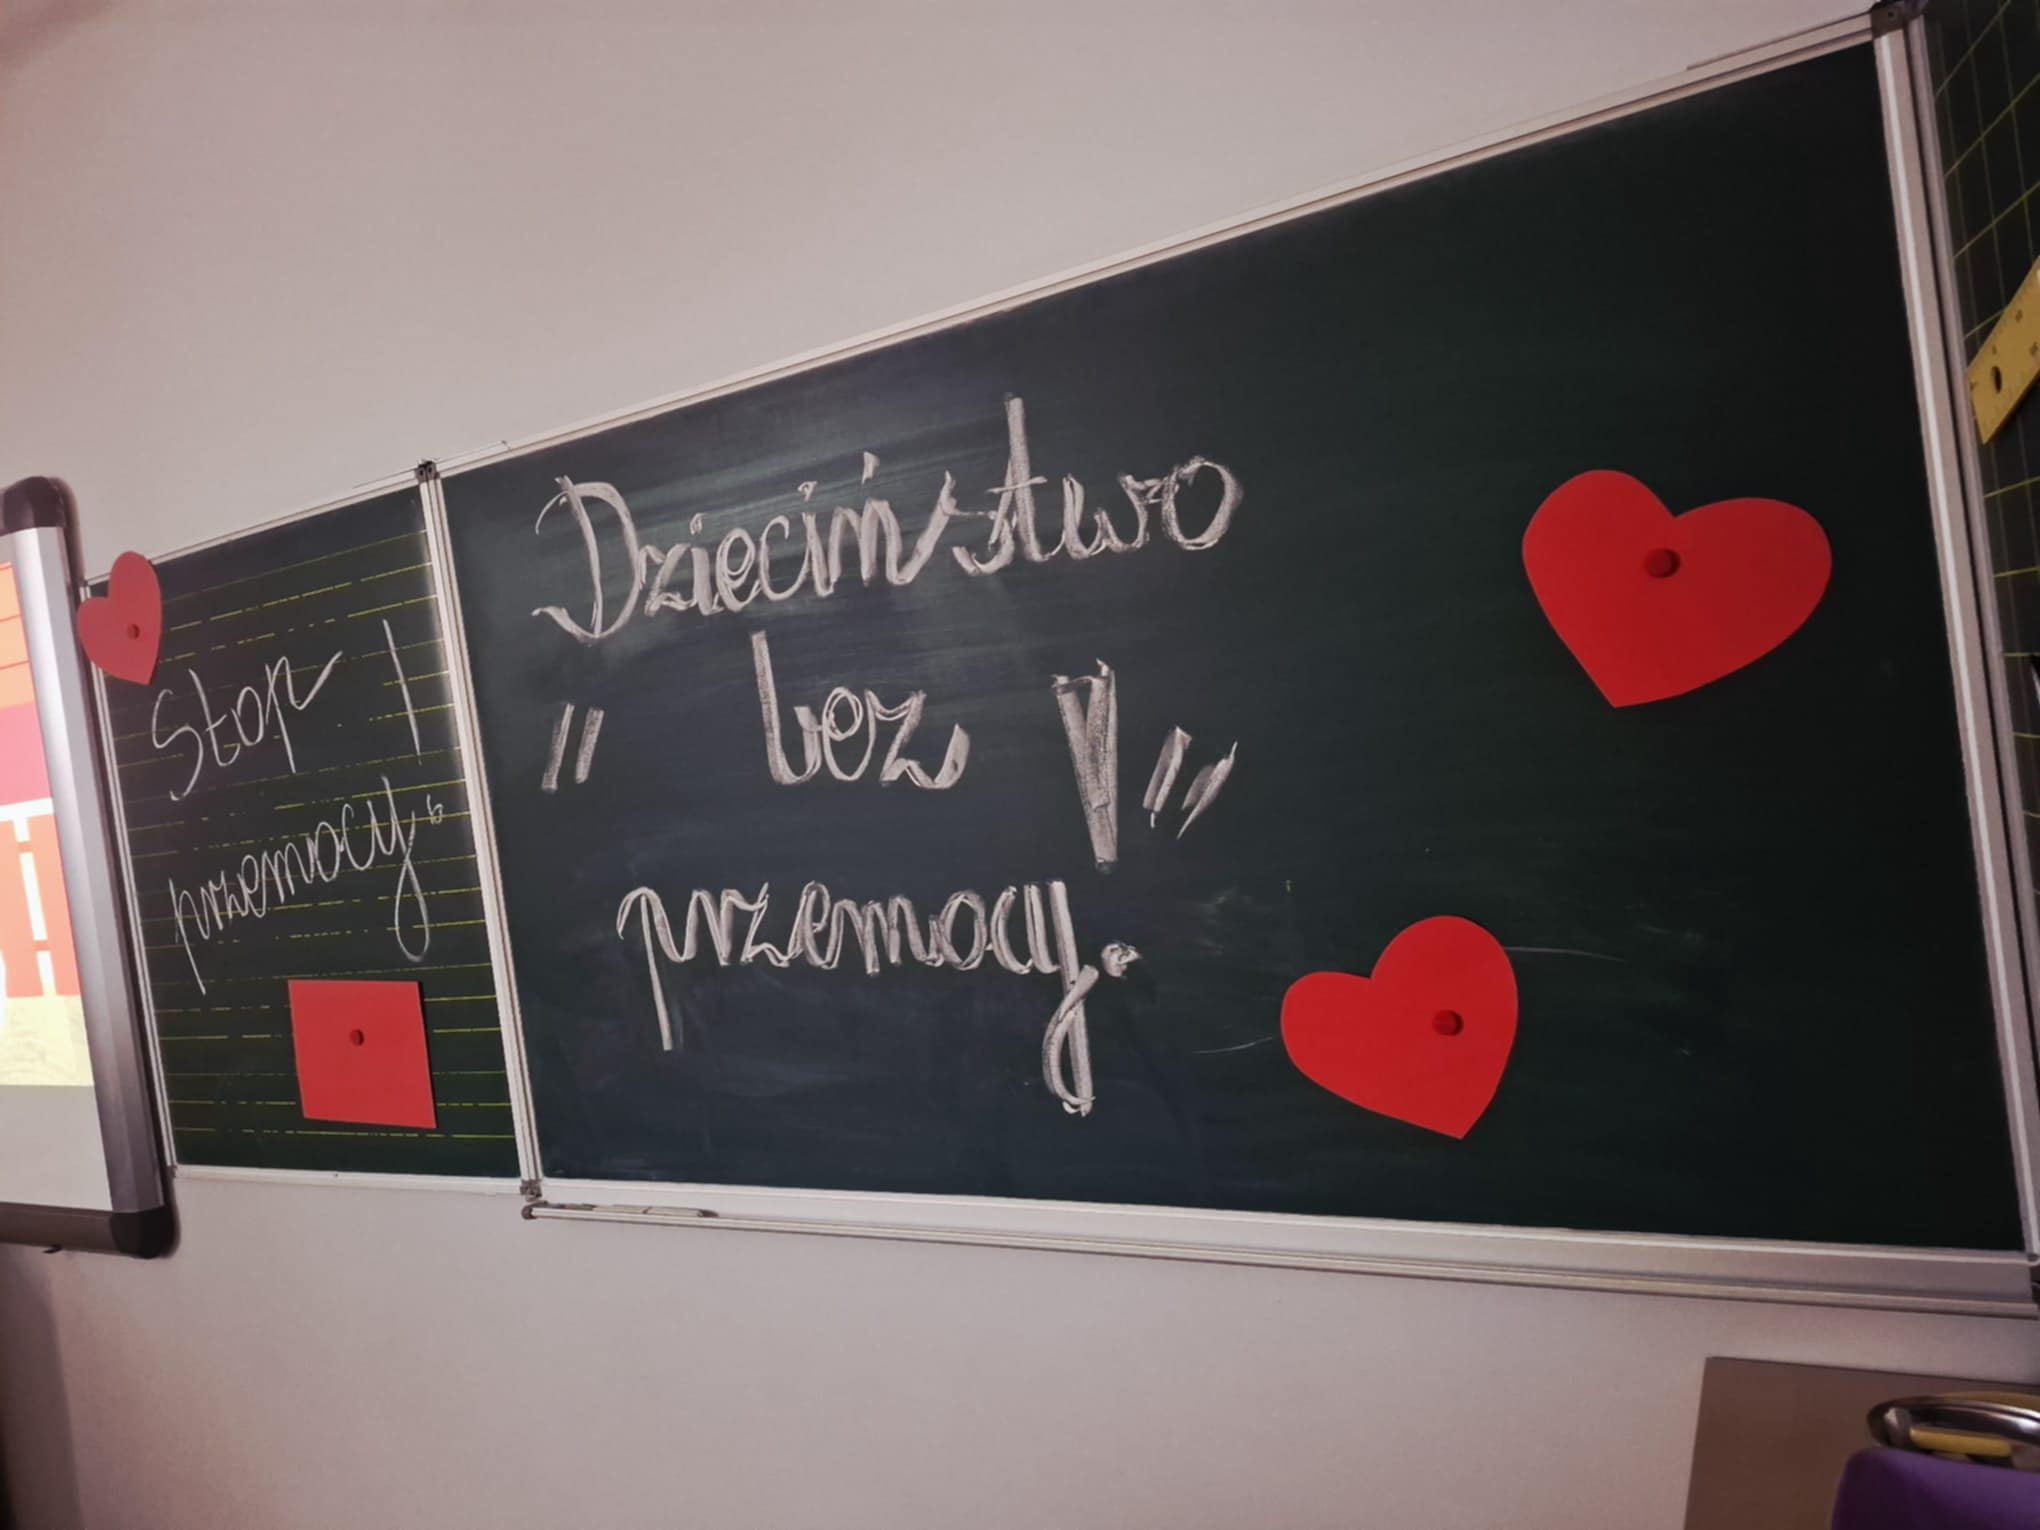 Stop
przemocy!
Dzieciństwo
" bez "
przemocy!